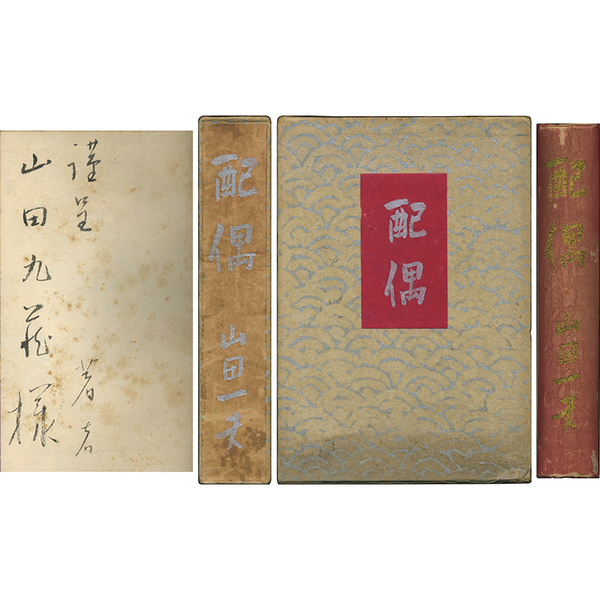 謹呈
山田 様
著者
配偶 山田一夫
配偶
配偶 山田一夫